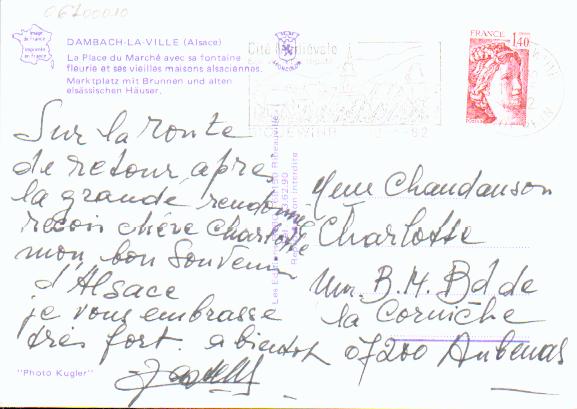 06700010
Image de France
Imprimée en France
DAMBACH-LA-VILLE (Alsace)
La Place du Marché avec sa fontaine
fleurie et ses vieilles maisons alsaciennes.
Marktplatz mit Brunnen und alten
elsässischen Häuser.
Cité Médiévale
FRANCE
1,40
82
Sur la route
de retour, après
la grande randonnée
reçois chère Charlotte
mon bon Souvenir
d'Alsace
je vous embrasse
très fort. a bientot
Mme Chaudanson
Charlotte
Imm. B.M. Bd de
la Corniche
07200 Aubenas
"Photo Kugler"
Ribeauvillé
Reproduction interdite